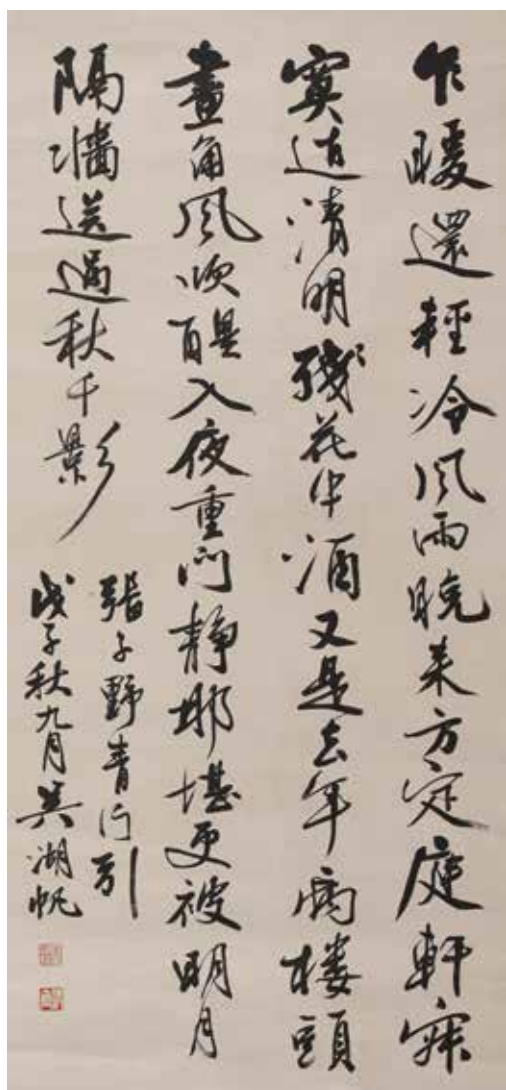 乍暖還輕冷風雨晚來方定庭軒寂
寞近清明殘花中酒又是去年病樓頭
畫角風吹醒入夜重門靜那堪更被明月
隔牆送過秋千影
張子野青門引
戊子秋九月吳湖帆